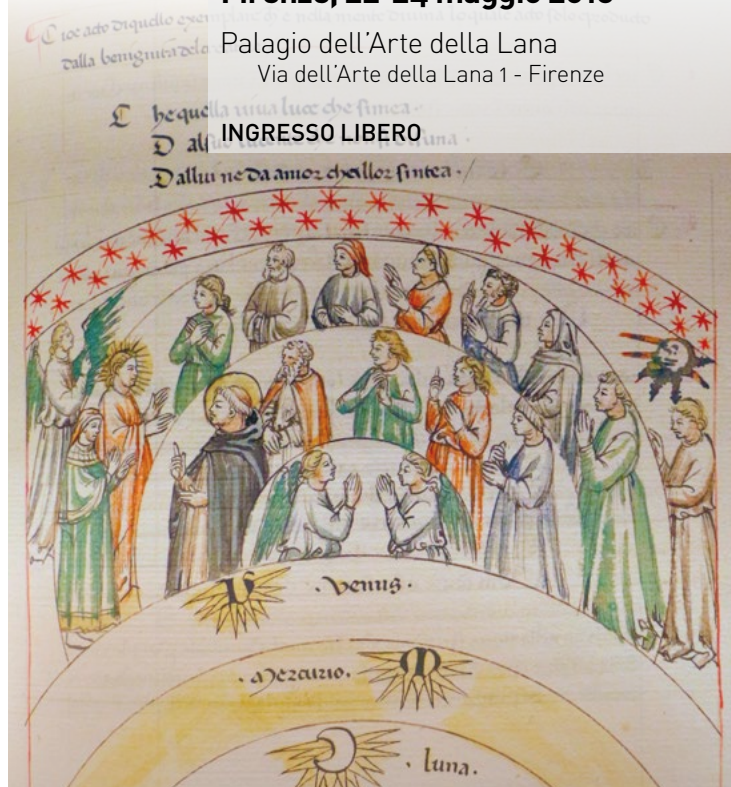 Firenze, 22-24 maggio 2018
Palagio dell'Arte della Lana
Via dell'Arte della Lana 1 - Firenze
INGRESSO LIBERO
Cioe acto di quello exemplare
dalla benignita
Che quella viva luce che si mea.
Dal suo
Dallui ne da amor challor sintea.
V
.Venus.
.Mercurio.
M
.luna.